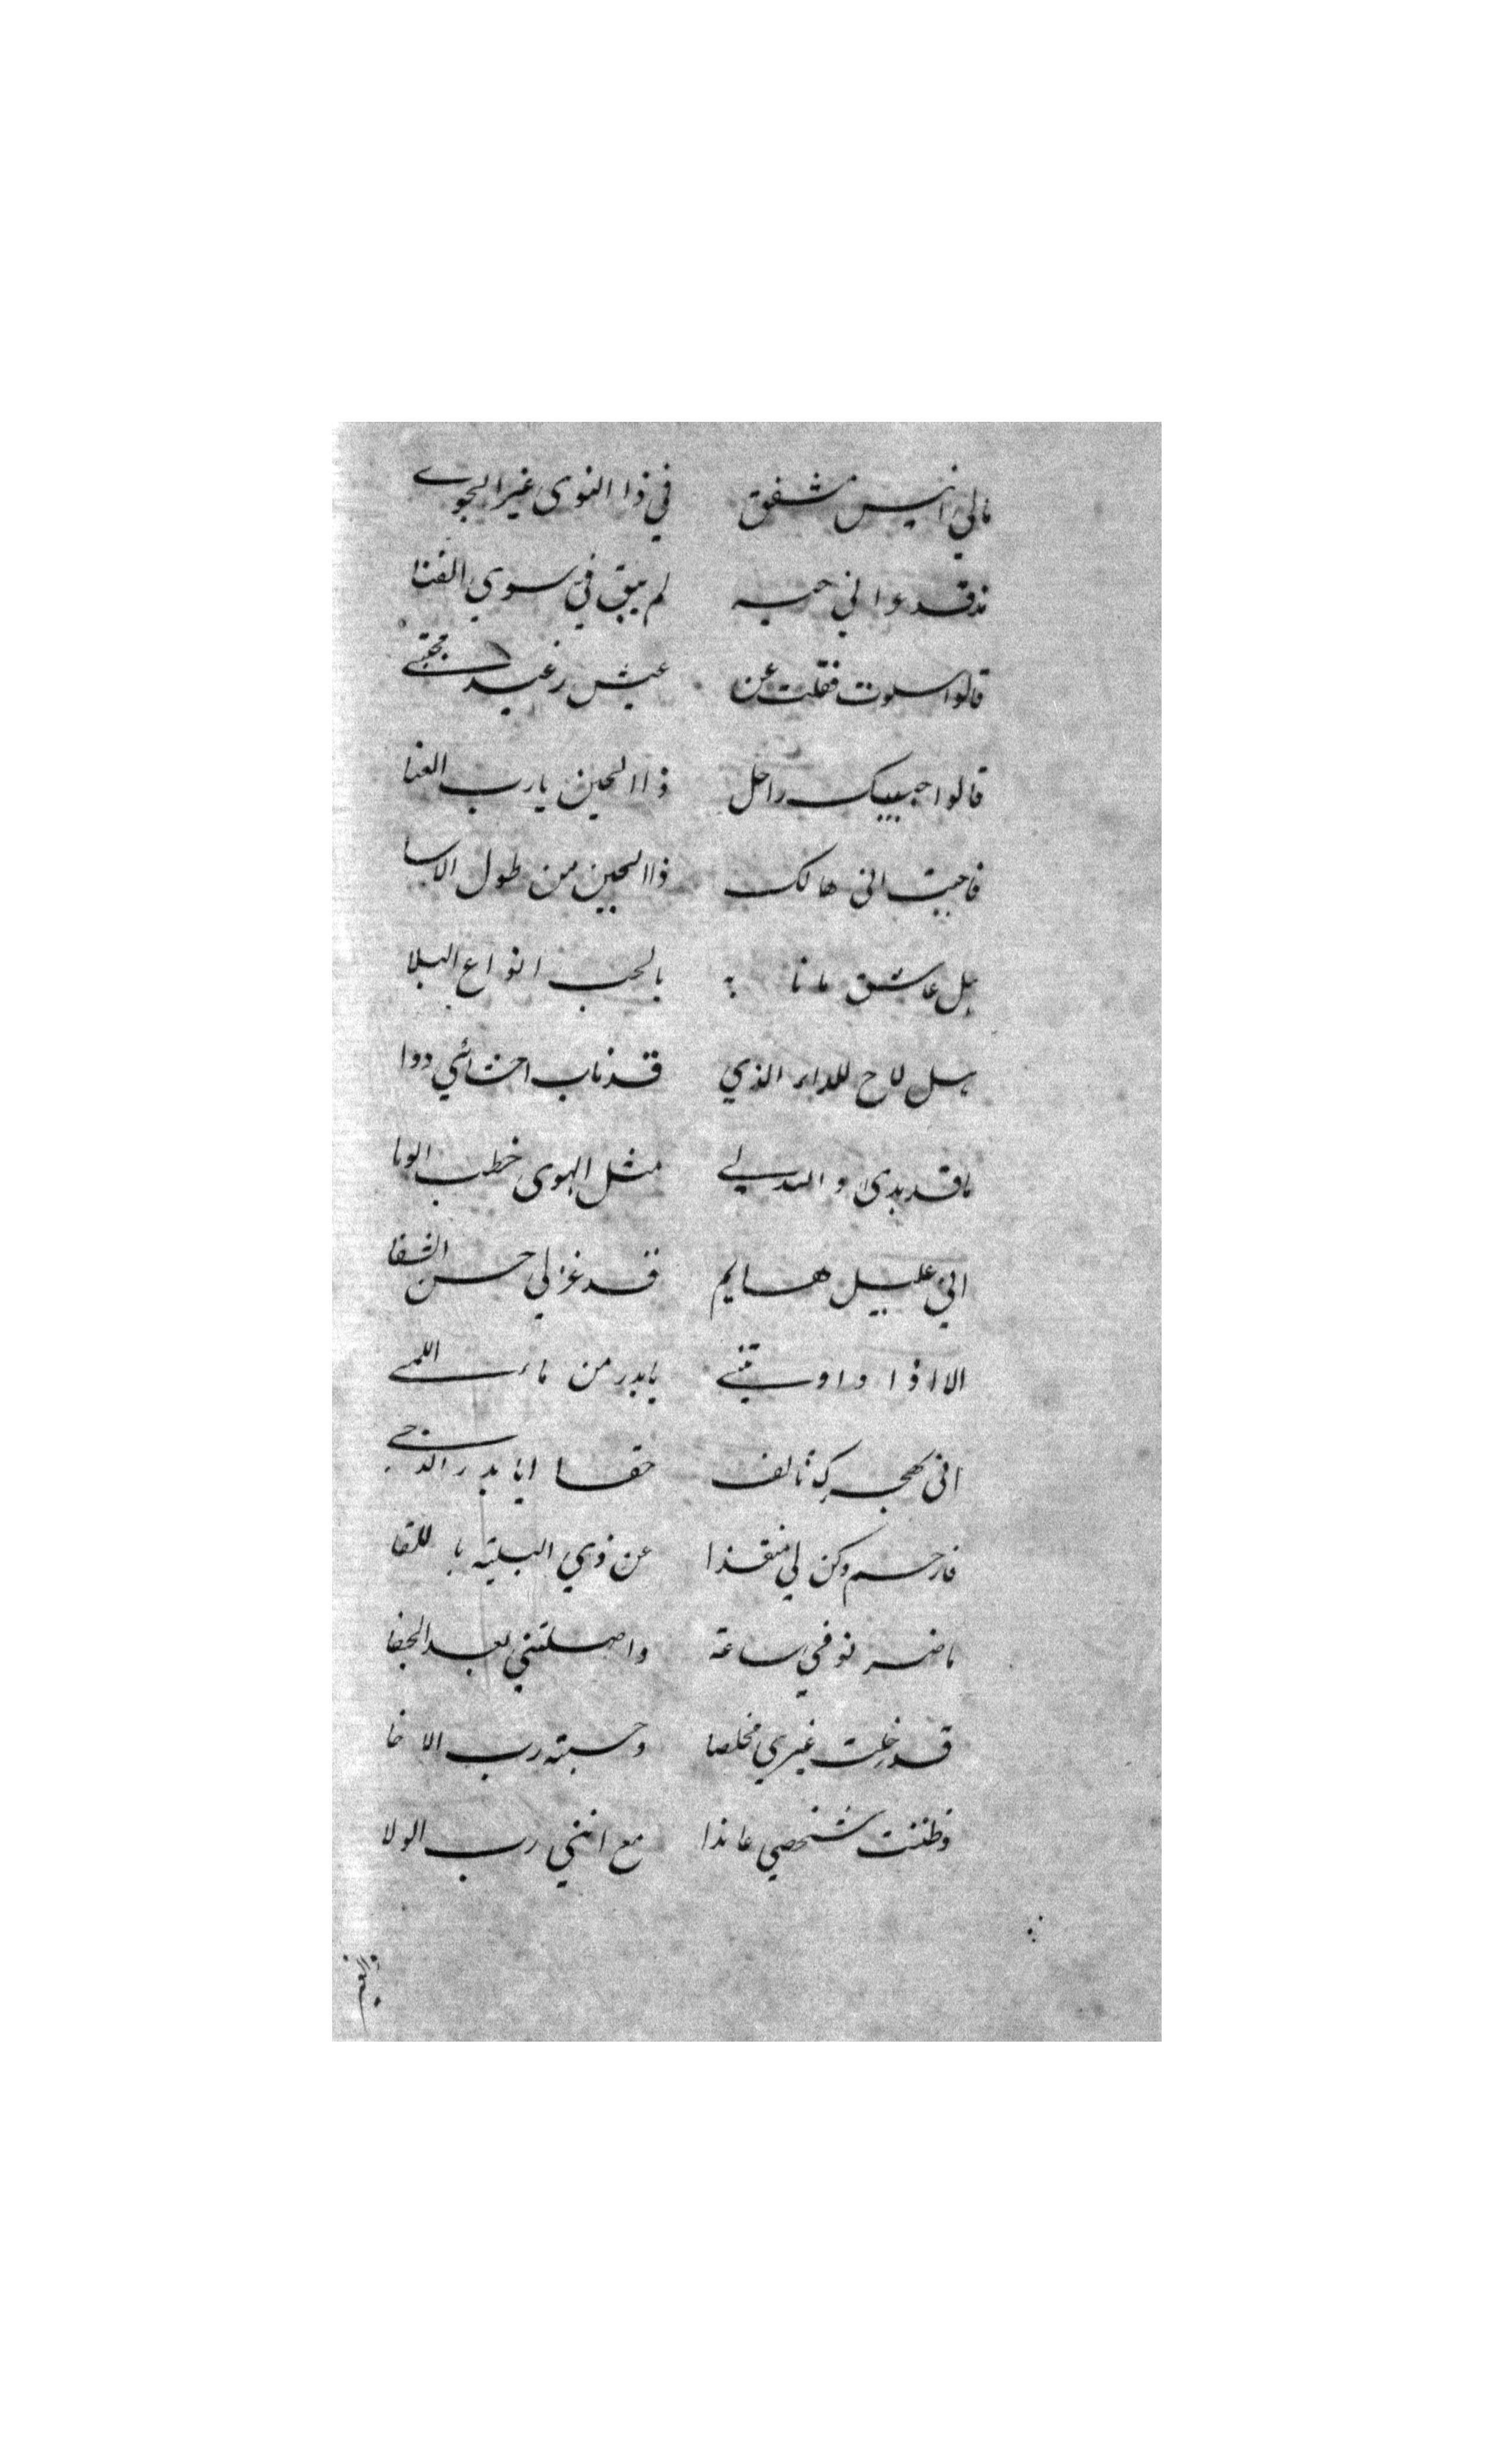 مالي انيس مشفق في ذا النوى غير الجوى
مذ قد دوا ني حبه لم يبق في سوي الفنا
قالوا سلوت فقلت عن عيش رغيد مجتبى
قالوا حبيبك راحل ذا الحين يارب العنا
فاجبت اني هالك ذا الحين من طول الاسا
هل عاشق مانا به بالحب انواع البلا
هل لاح للداء الذي قد ذاب احشائي دوا
ما قد بدى والله لي مثل الهوى خطب الوبا
اني عليل هايم قد عز لي حسن الشفا
الا اذا داويتني يا بدر من ماء اللمى
اني بهجرك تالف حقا ايا بدر الدجى
فارحم وكن لي منقذا عن ذي البلية باللقا
ما ضر لو في ساعة واصلتني بعد الجفا
قد خلت غيري مخلصا وحسبته رب الاخا
وظننت شخصي عاندا مع انني رب الولا